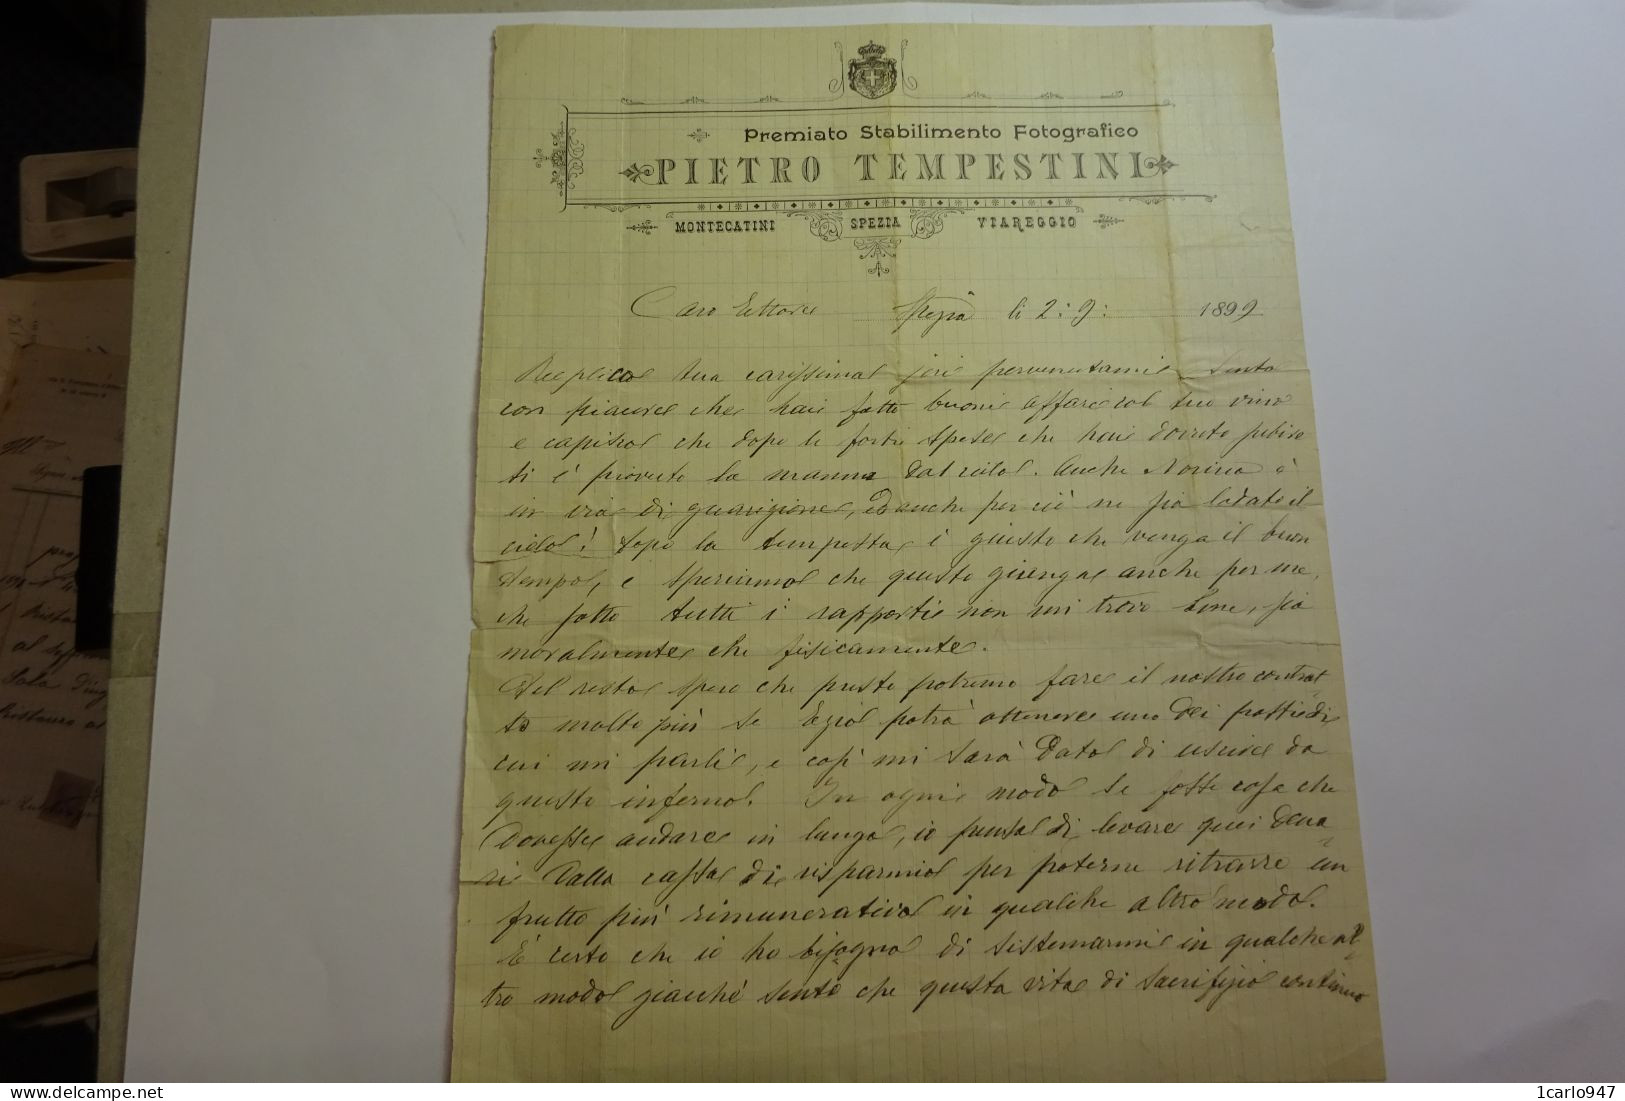 Premiato Stabilimento Fotografico
PIETRO TEMPESTINI
MONTECATINI SPEZIA VIAREGGIO
Caro Ettore Spezia li 2: 9: 1899
Replico tua carissima jeri pervenutami. Sento
con piacere che hai fatto buoni affari col tuo vino
e capisco che dopo le forti spese che hai dovuto subire
ti è piovuto la manna dal cielo. Anche Norina è
in via di guarigione, e anche per ciò ne sia lodato il
cielo! Dopo la tempesta è giusto che venga il buon
tempo, e speriamo che questo giunga anche per me,
che sotto tutti i rapporti non mi trovo bene, sia
moralmente che fisicamente.
Del resto spero che presto potremo fare il nostro contrat-
to molto più se Egio potrà ottenere uno dei posti di
cui mi parli, e così mi sarà dato di uscire da
questo inferno. In ogni modo se fosse cosa che
dovesse andare in lungo, io penso di levare quei dena-
ri dalla cassa di risparmio per poterne ritrarre un
frutto più rimunerativo in qualche altro modo.
È certo che io ho bisogno di sistemarmi in qualche al-
tro modo giacché sento che questa vita di sacrifizio continuo
1carlo947